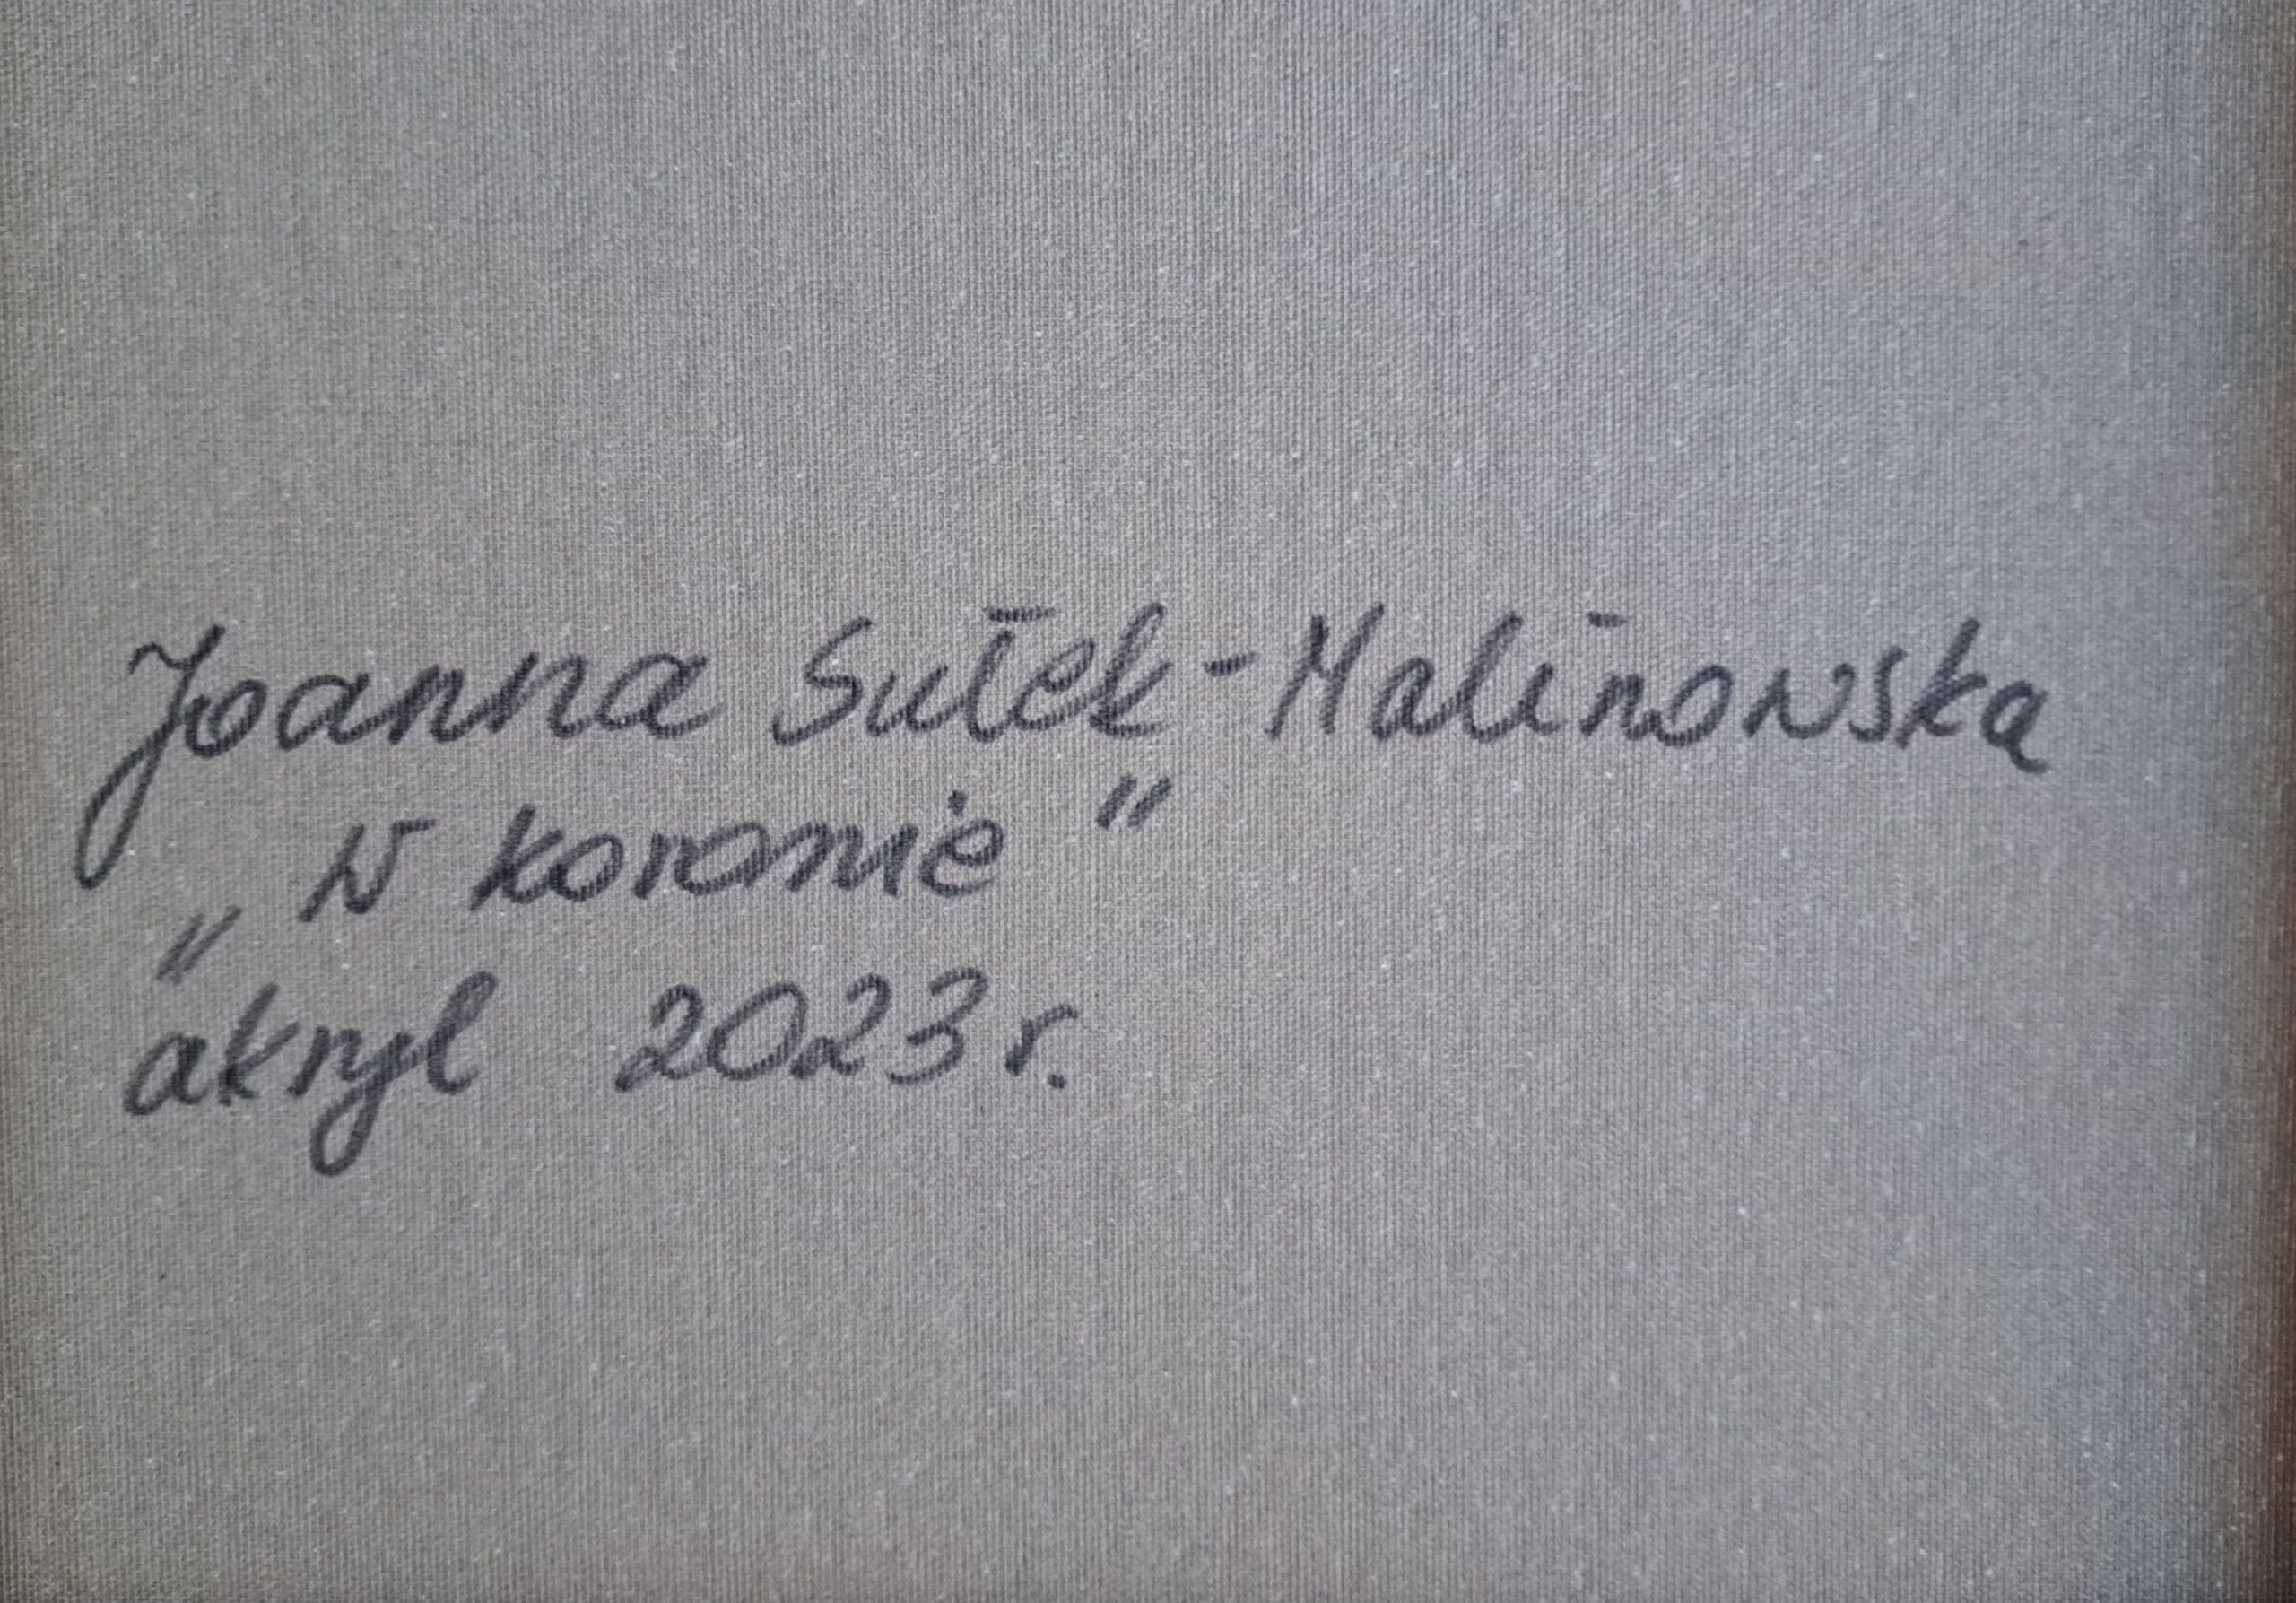 Joanna Sułek-Malinowska
„W koronie"
akryl 2023 r.